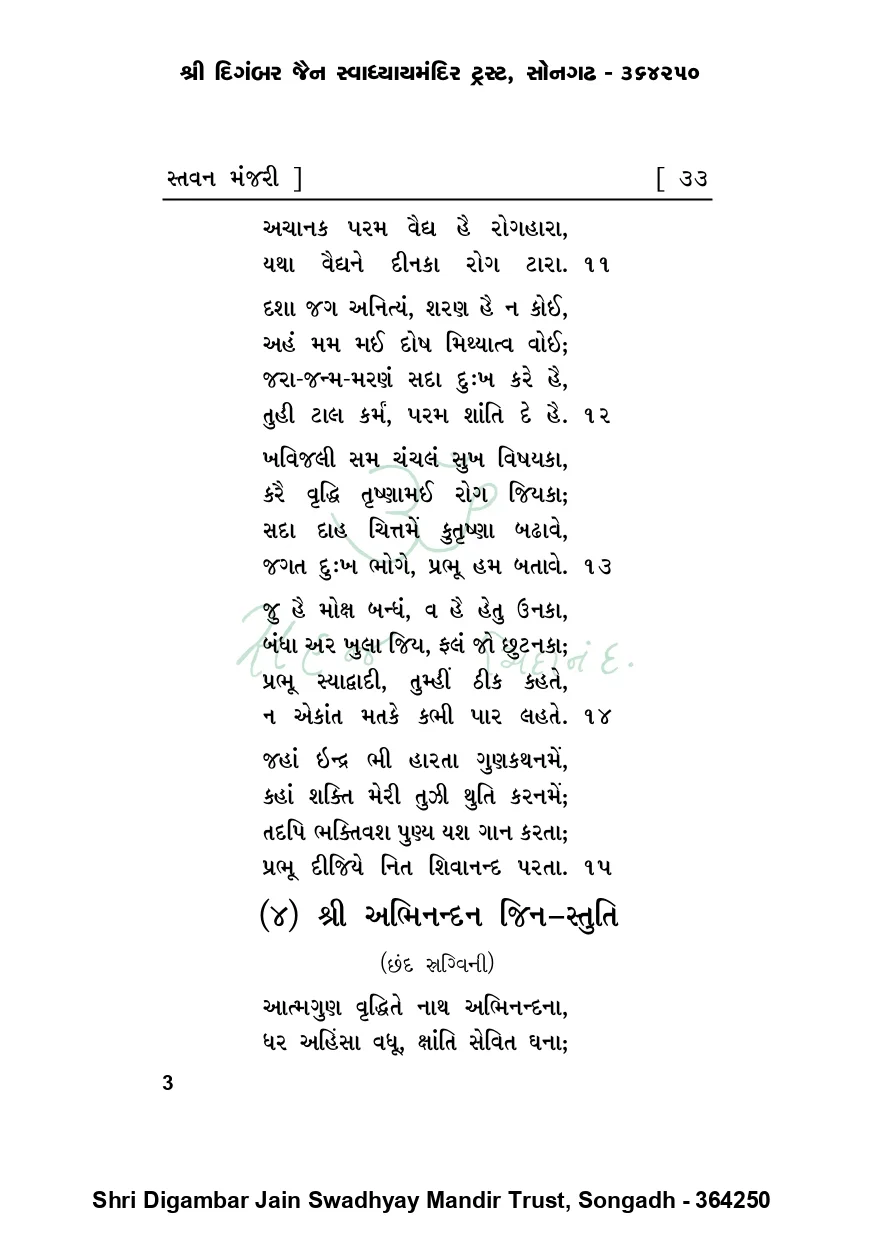 શ્રી દિગંબર જૈન સ્વાધ્યાયમંદિર ટ્રસ્ટ, સોનગઢ - ૩૬૪૨૫૦
સ્તવન મંજરી ] [ ૩૩
અચાનક પરમ વૈદ્ય હૈ રોગહારા,
યથા વૈદ્યને દીનકા રોગ ટારા. ૧૧
દશા જગ અનિત્યં, શરણ હૈ ન કોઈ,
અહં મમ મઈ દોષ મિથ્યાત્વ વોઈ;
જરા-જન્મ-મરણં સદા દુઃખ કરે હૈ,
તુહી ટાલ કર્મં, પરમ શાંતિ દે હૈ. ૧૨
ખવિજલી સમ ચંચલં સુખ વિષયકા,
કરૈ વૃદ્ધિ તૃષ્ણામઈ રોગ જિયકા;
સદા દાહ ચિત્તમેં કુતૃષ્ણા બઢાવે,
જગત દુઃખ ભોગે, પ્રભૂ હમ બતાવે. ૧૩
જુ હૈ મોક્ષ બન્ધં, વ હૈ હેતુ ઉનકા,
બંધા અર ખુલા જિય, ફલં જો છુટનકા;
પ્રભૂ સ્યાદ્વાદી, તુમ્હીં ઠીક કહતે,
ન એકાંત મતકે કભી પાર લહતે. ૧૪
જહાં ઇન્દ્ર ભી હારતા ગુણકથનમેં,
કહાં શક્તિ મેરી તુઝી થુતિ કરનમેં;
તદપિ ભક્તિવશ પુણ્ય યશ ગાન કરતા;
પ્રભૂ દીજિયે નિત શિવાનન્દ પરતા. ૧૫
(૪) શ્રી અભિનન્દન જિન–સ્તુતિ
(છંદ સ્રગ્વિની)
આત્મગુણ વૃદ્ધિતે નાથ અભિનન્દના,
ધર અહિંસા વધૂ, ક્ષાંતિ સેવિત ઘના;
3
Shri Digambar Jain Swadhyay Mandir Trust, Songadh - 364250